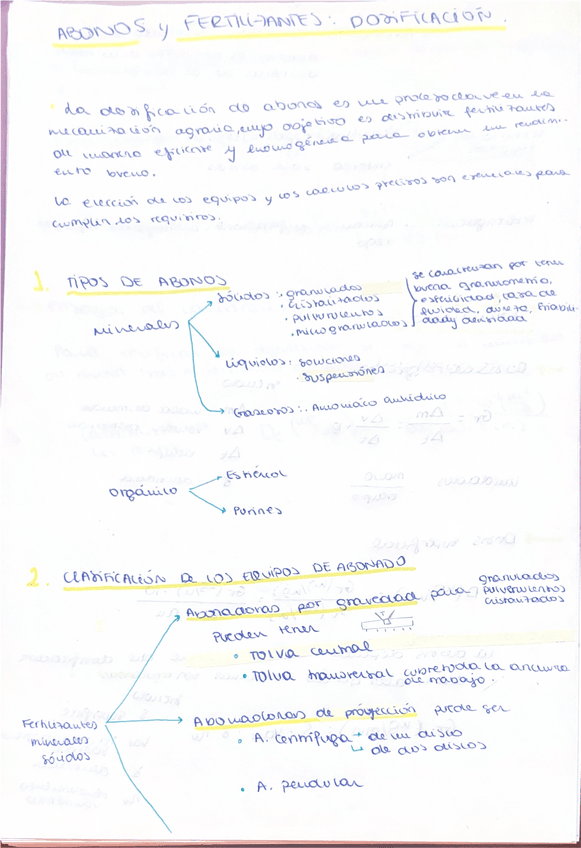 ABONOS y FERTILIZANTES: DOSIFICACIÓN.
La dosificación de abonos es un proceso clave en la
mecanización agraria, cuyo objetivo es distribuir fertilizantes
de manera eficiente y homogénea para obtener un rendimi-
ento bueno.
La elección de los equipos y los cálculos precisos son esenciales para
cumplir los requisitos.
1. TIPOS DE ABONOS
Minerales
Sólidos: granulados
· cristalizados
· pulverulentos
· microgranulados
se caracterizan por tener
buena granulometría,
esfericidad, tasa de
fluidez, dureza, friabili-
dad y densidad
Líquidos: soluciones
· suspensiones
Gaseosos: Amoniaco anhidrico
Orgánico
Estiércol
Purines
2. CLASIFICACIÓN DE LOS EQUIPOS DE ABONADO
Fertilizantes
minerales
sólidos
Abonadoras por gravedad para
granulados
pulverulentos
cristalizados
Pueden tener
• Tolva central
• Tolva transversal cubre toda la anchura
de trabajo.
Abonadoras de proyección puede ser
• A. centrífuga
de un disco
de dos discos
• A. pendular